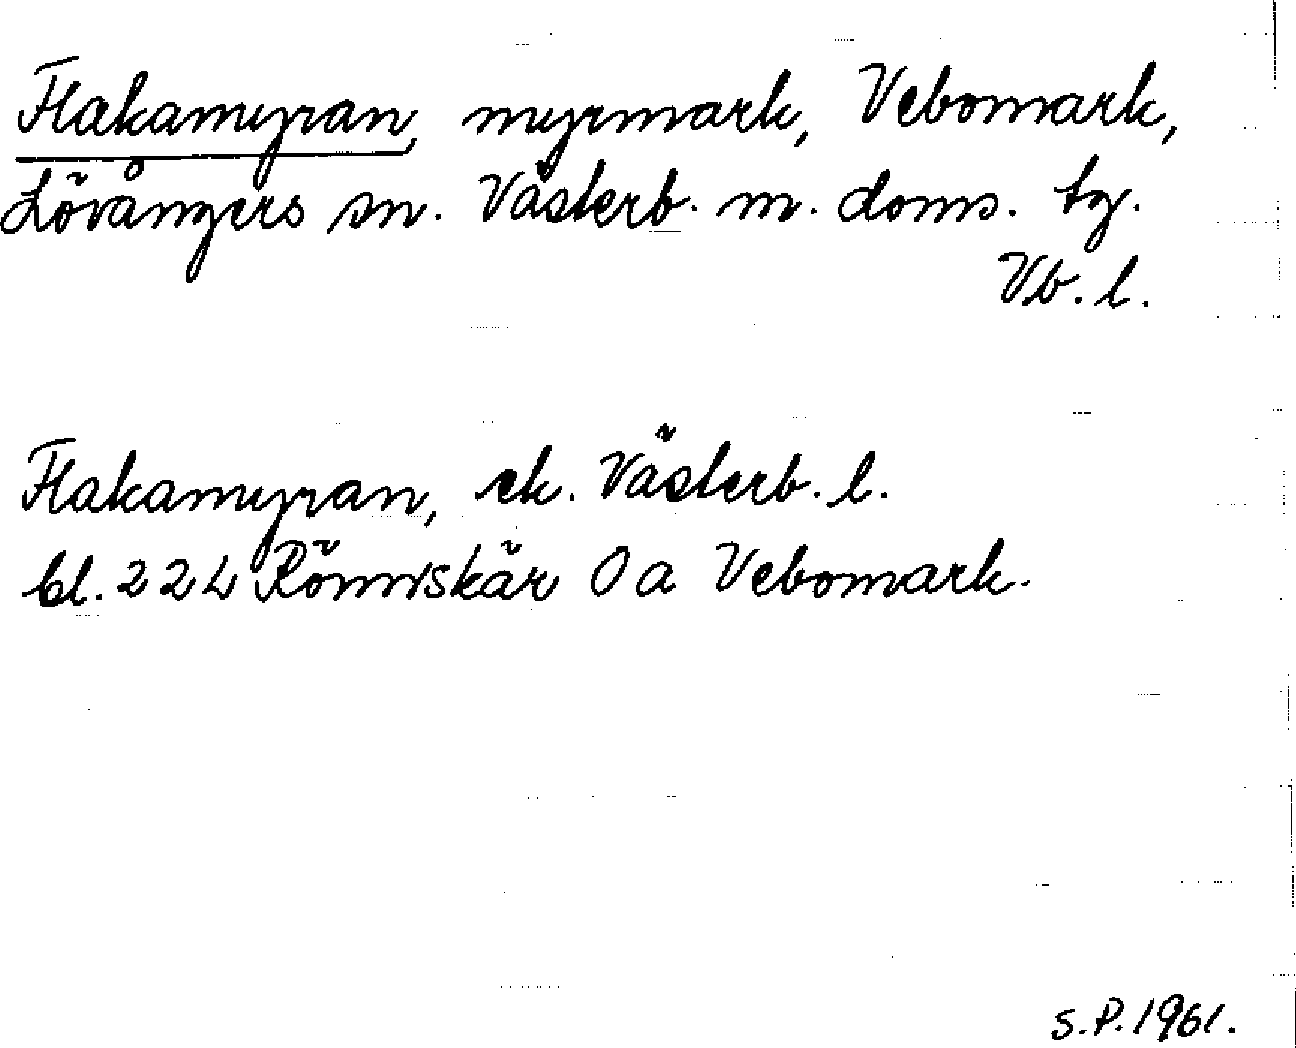 Flakamyran, myrmark, Vebomark,
Lövångers sn. Västerb. m. doms. tg.
Vb. l.
Flakamyran, ek. Västerb. l.
bl. 224 Rönnskär 0 a Vebomark.
S. P. 1961.